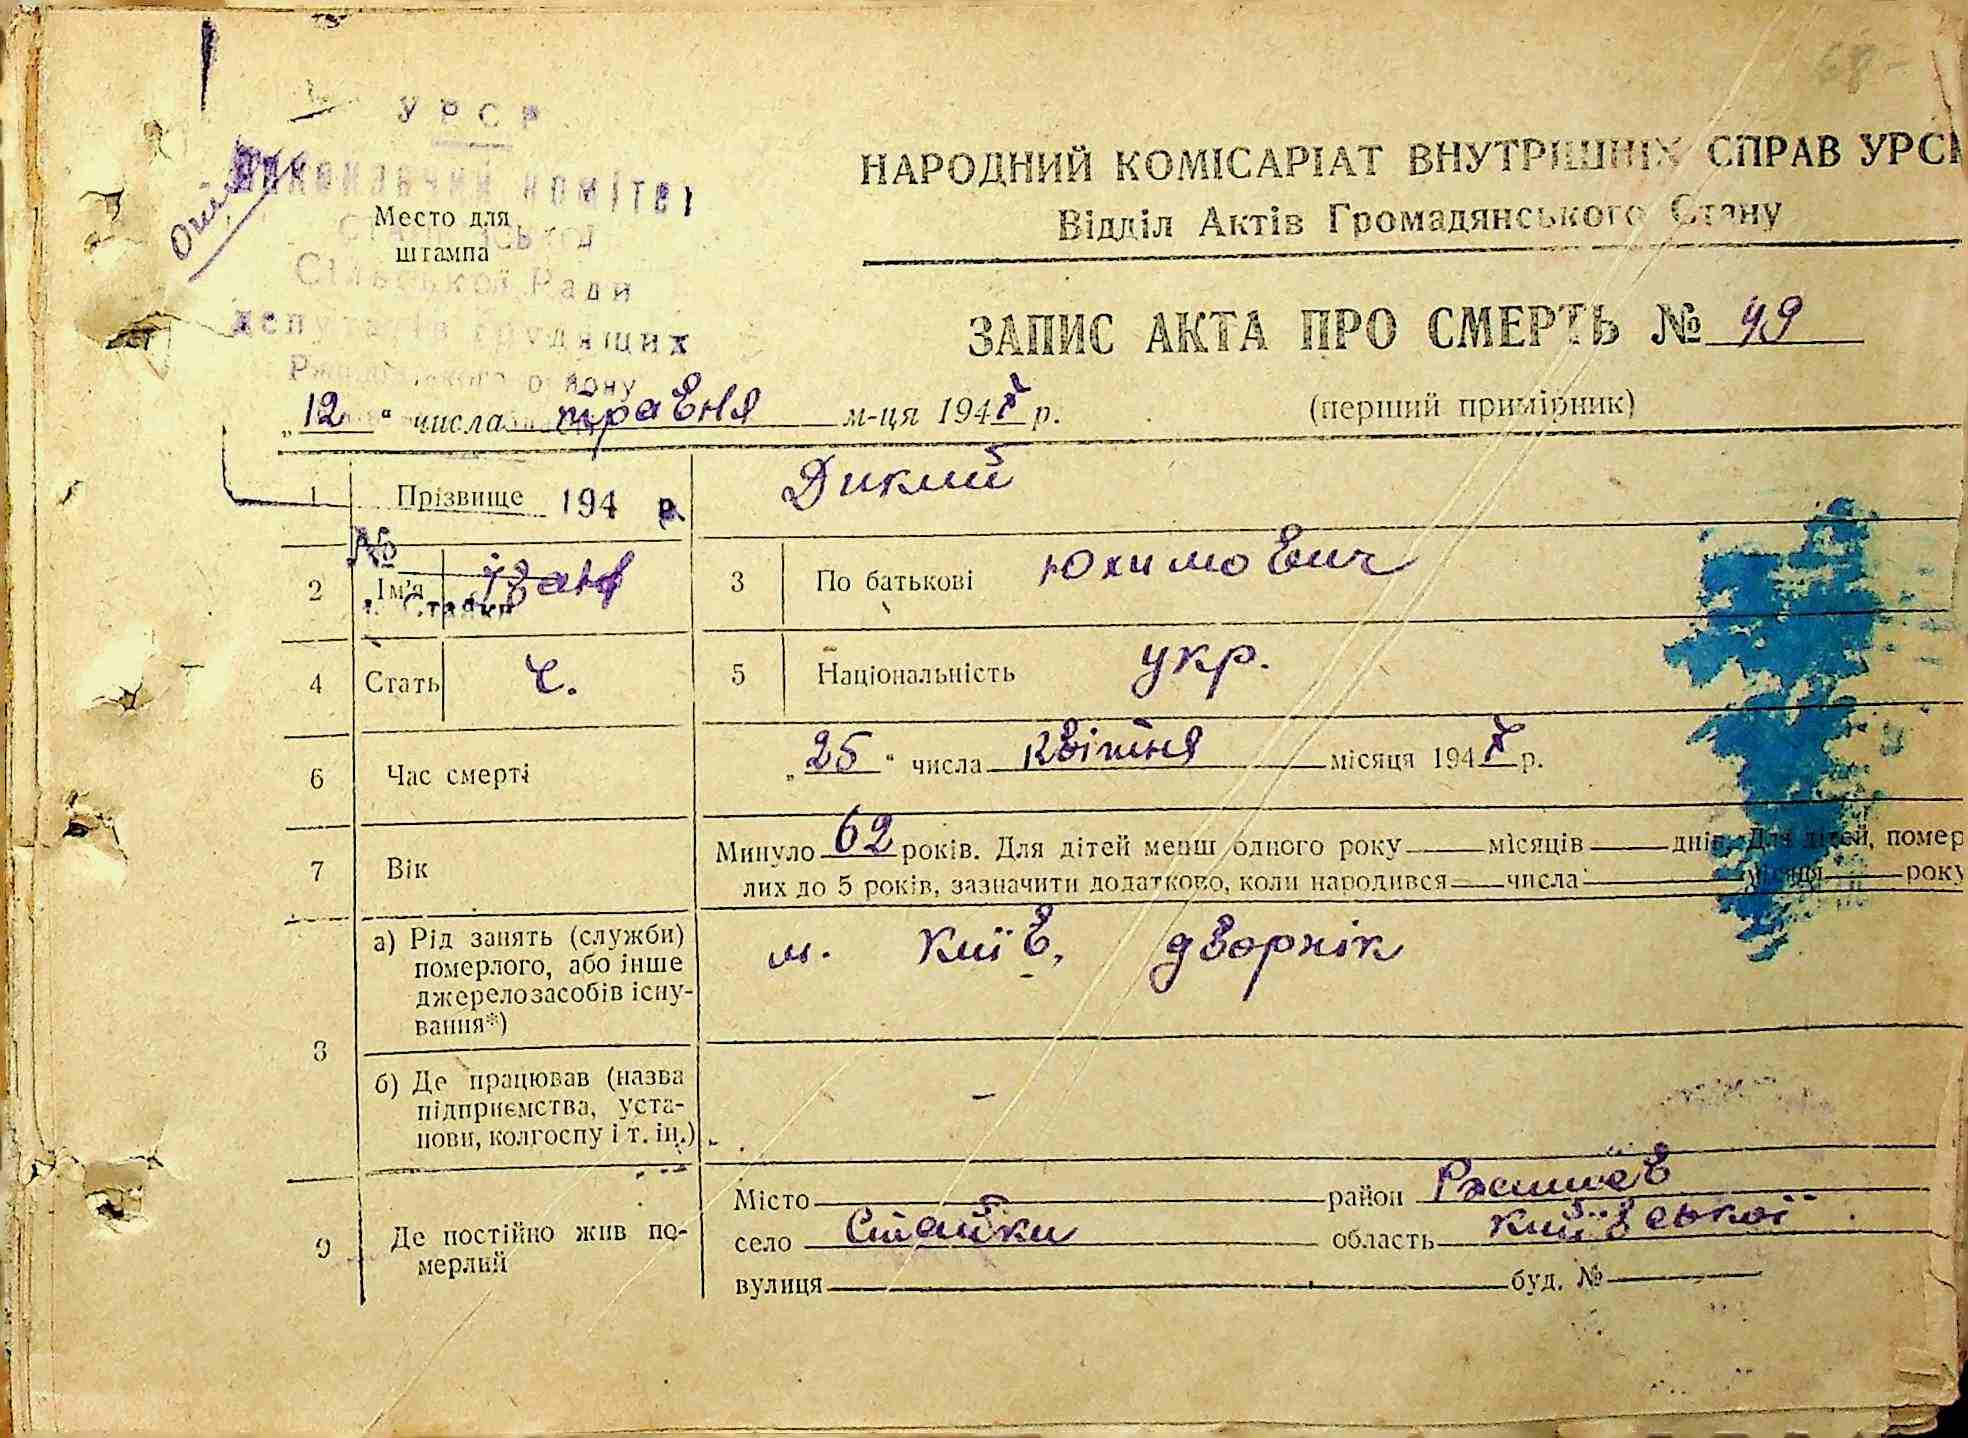 68
УРСР
Виконавчий комітет
Сільської Ради
депутатів трудящих
Место для
штампа
НАРОДНИЙ КОМІСАРІАТ ВНУТРІШНІХ СПРАВ УРСР
Відділ Актів Громадянського Стану
ЗАПИС АКТА ПРО СМЕРТЬ № 49
(перший примірник)
„12“ числа травня м-ця 1947 р.
1 Прізвище Дикий
194 р.
№
с. Стайки
2 Ім'я Іван 3 По батькові Юхимович
4 Стать ч. 5 Національність укр.
6 Час смерті „25“ числа квітня місяця 1947 р.
7 Вік Минуло 62 років. Для дітей менш одного року місяців днів. Для дітей, помер
лих до 5 років, зазначити додатково, коли народився числа місяця року
8 а) Рід занять (служби)
померлого, або інше
джерело засобів існу-
вання*)
м. Київ, дворнік
б) Де працював (назва
підприємства, уста-
нови, колгоспу і т. ін.)
-
9 Де постійно жив по-
мерлий
Місто район Ржищев
село Стайки область Київської
вулиця буд. №